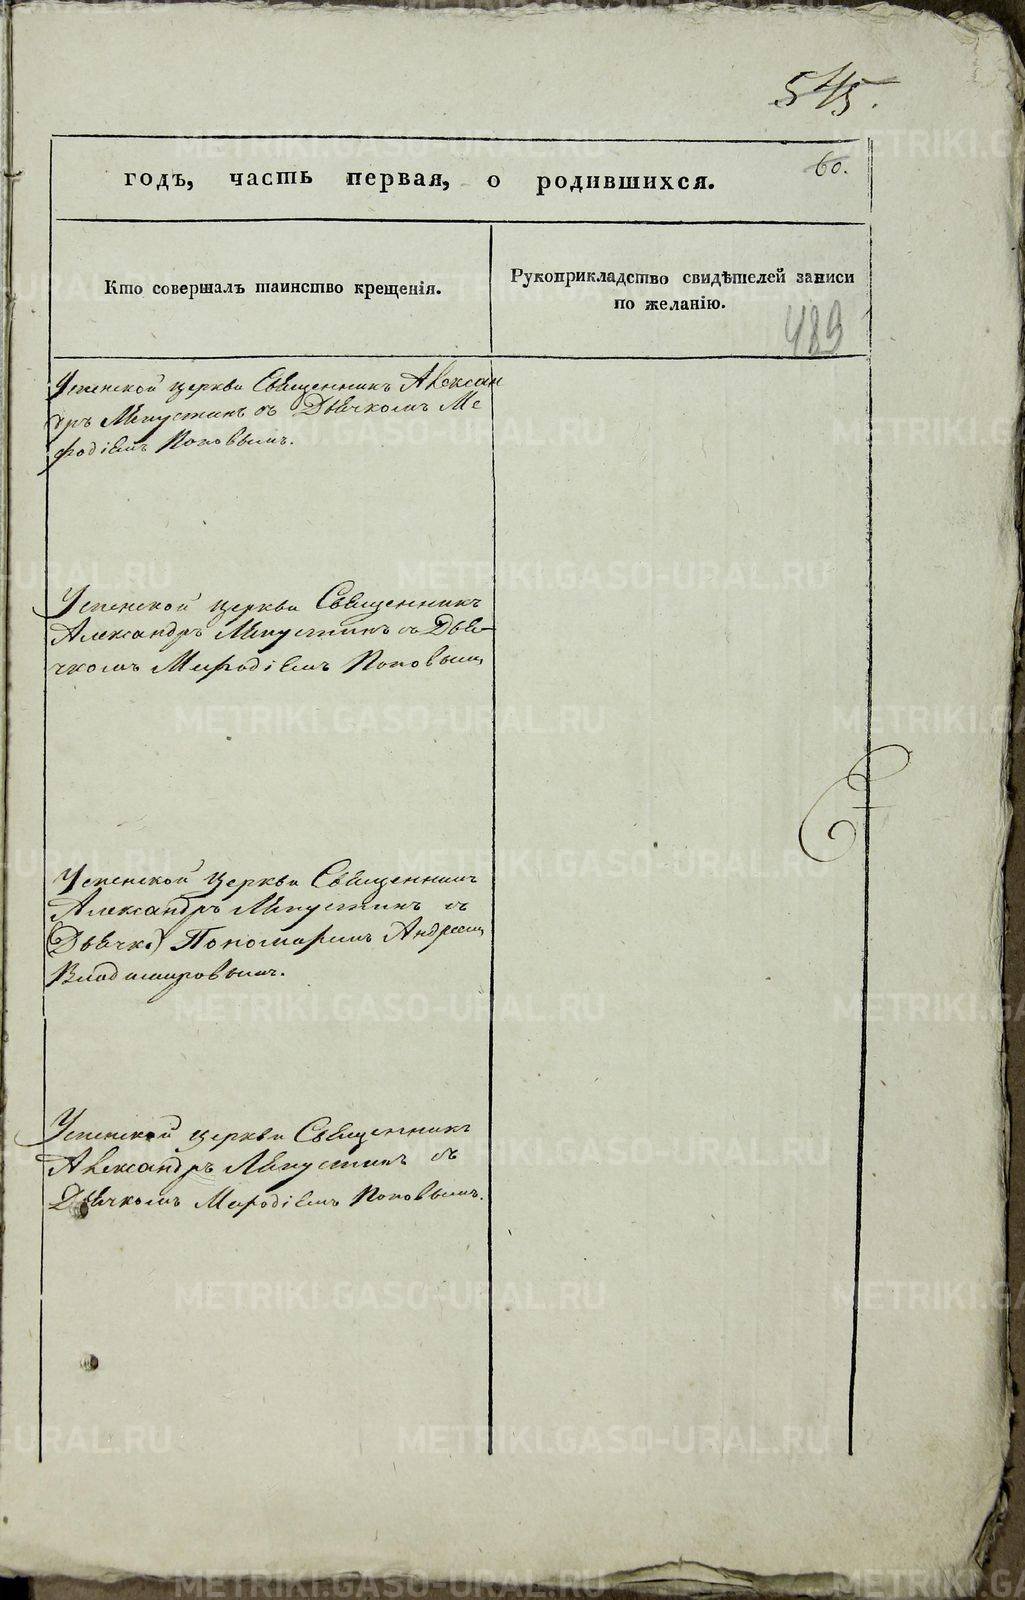 545.
60.
годъ, часть первая, о родившихся.
Кто совершалъ таинство крещенія.
Рукоприкладство свидѣтелей записи
по желанію.
489
Успенской церкви Священникъ Алексан
дръ Мѣ съ Дьячкомъ Ме
фодіемъ Поповымъ.
Успенской церкви Священникъ
Александръ съ Дья-
чкомъ Мефодіемъ Поповымъ
Успенской церкви Священникъ
Александръ съ
(Дьячко) Пономаремъ Андреемъ
Владимировымъ.
Успенской церкви Священникъ
Александръ съ
Дьячкомъ Мефодіемъ Поповымъ.
METRIKI.GASO-URAL.RU